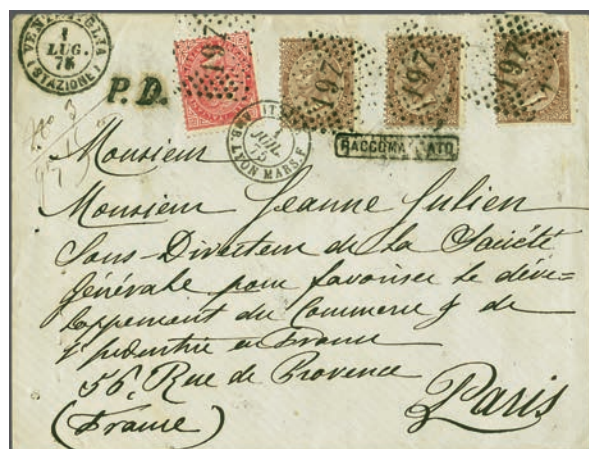 VENTIMIGLIA
1
LUG.
75
(STAZIONE)
P.D.
197
197
197
197
1
JUIL.
75
LYON MARS.F
RACCOMANDATO
No 3
Monsieur
Monsieur Jeanne Julien
Sous-Directeur de la Société
Générale pour favoriser le déve=
loppement du Commerce & de
l'industrie en France
56, Rue de Provence
Paris
(France)